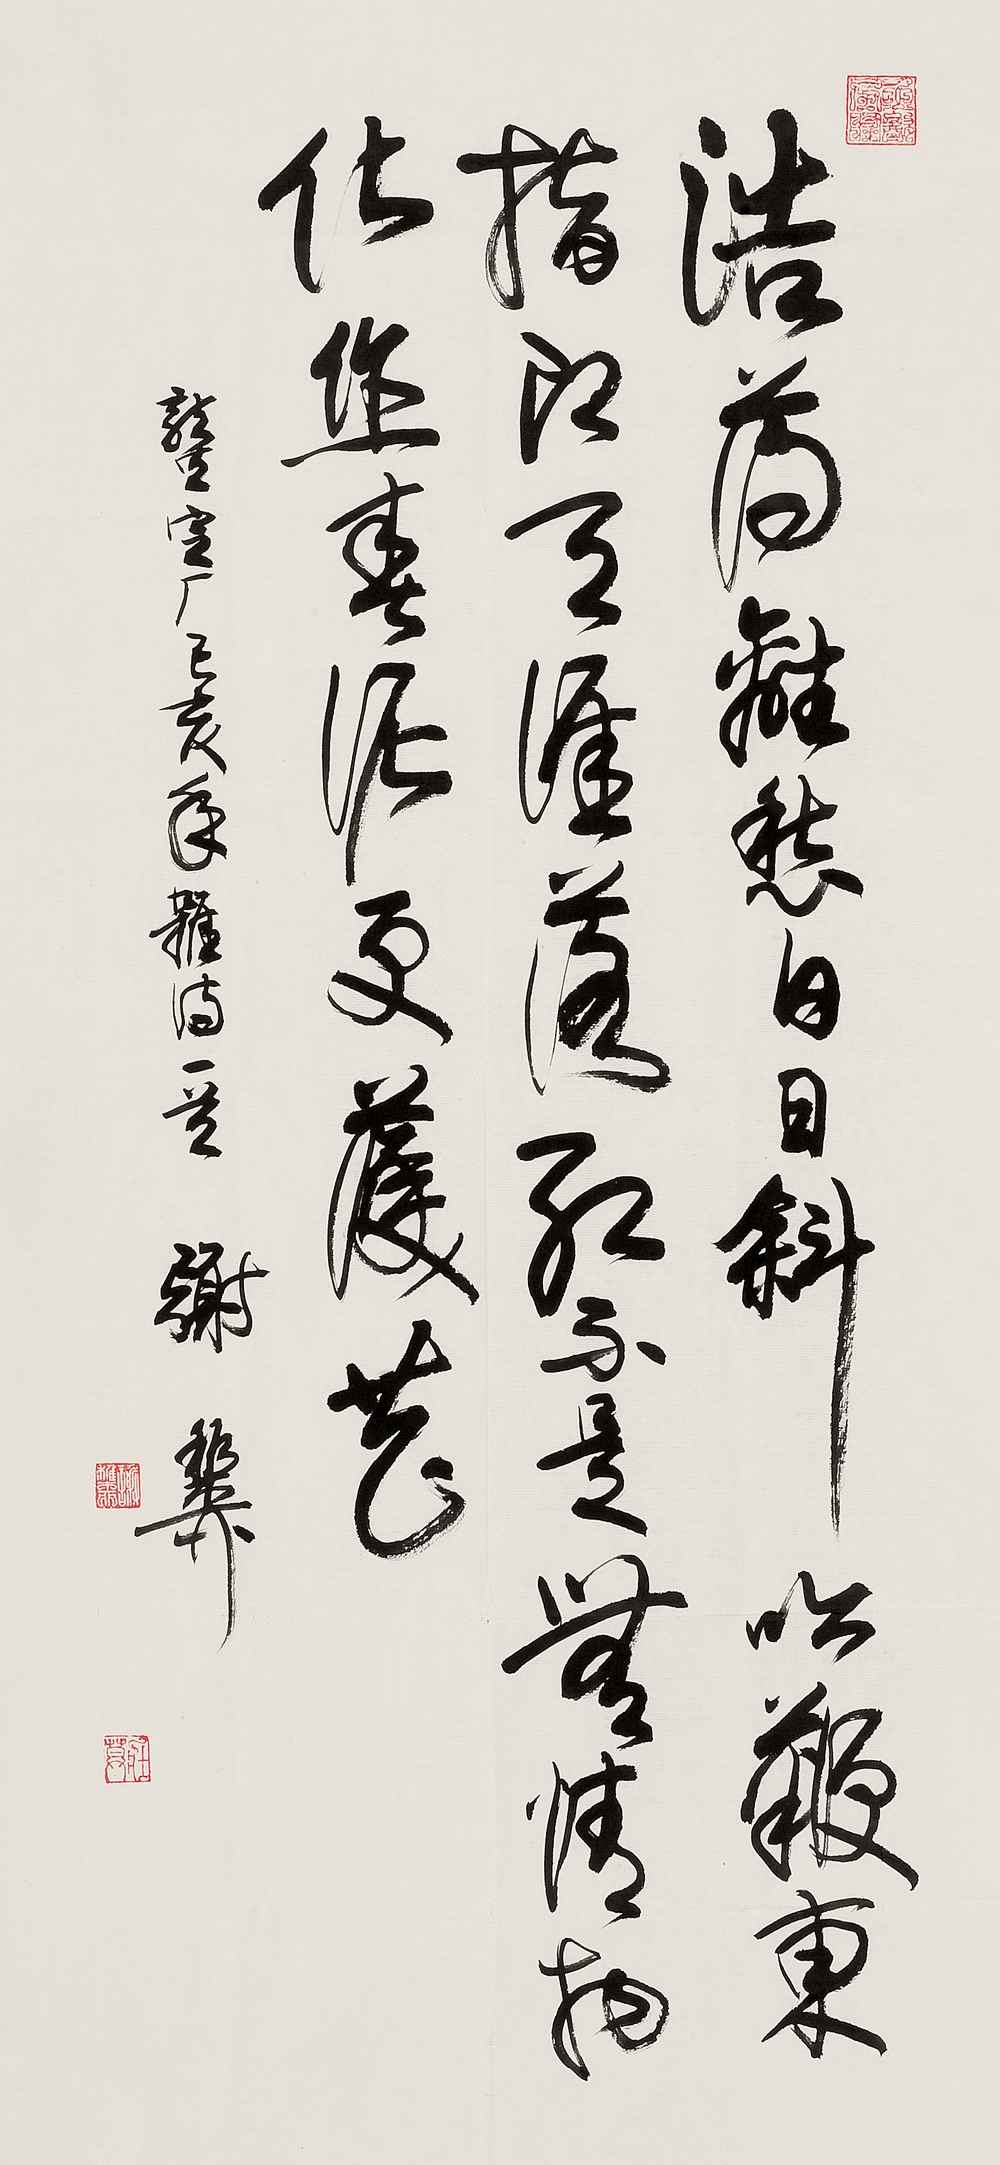 浩蕩離愁白日斜吟鞭東
指即天涯落紅不是無情物
化作春泥更護花
龔定厂己亥年雜詩一首 謝